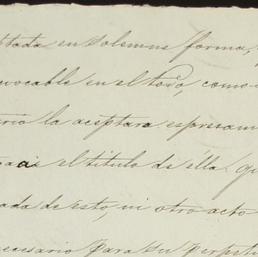 ptada en solemne forma,
evocable en el todo, como
ario la aceptara espresam
el titulo de ella que
ada de esto, ni otro acto
necesario para su perpetu